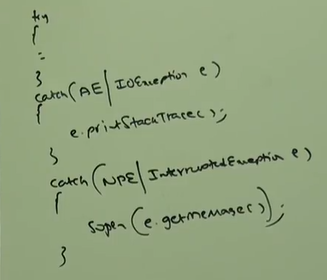 try
{
=
}
catch(AE|IOException e)
{
e.printStackTrace();
}
catch(NPE|InterruptedException e)
{
sopln(e.getMessage());
}